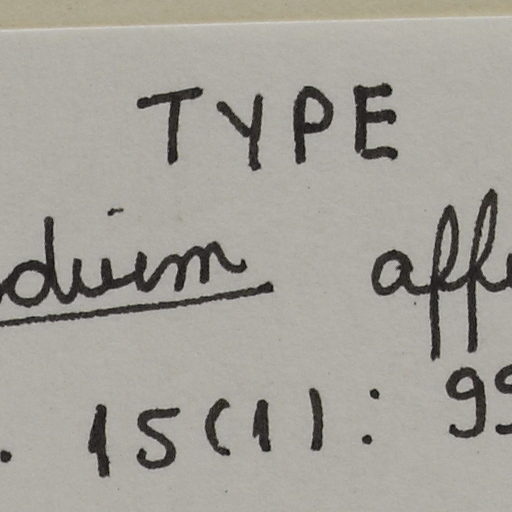 TYPE
dium aff
. 15(1): 99